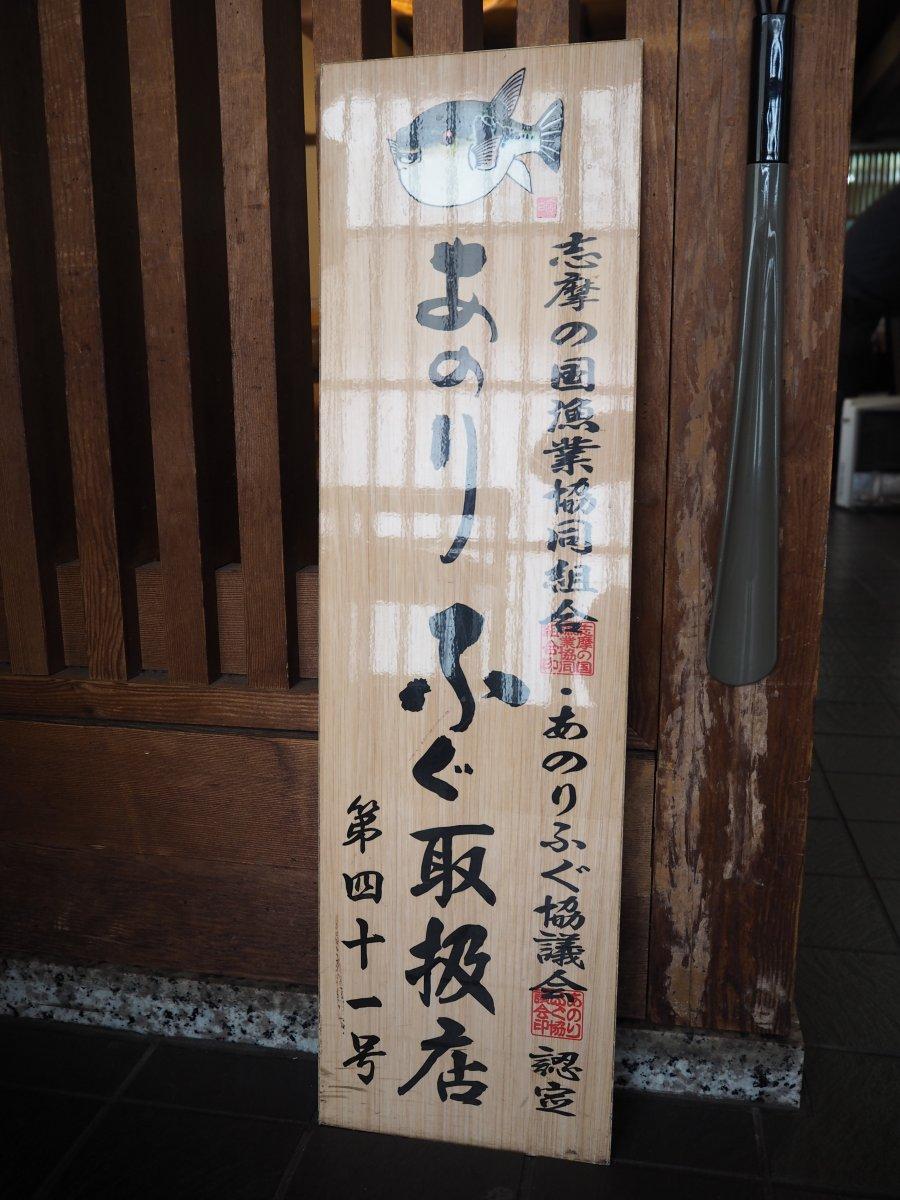 志摩の国漁業協同組合・あのりふぐ協議会 認定
志摩の国
漁業協同
組合印
あのり
ふぐ協
議会印
あのりふぐ取扱店
第四十一号